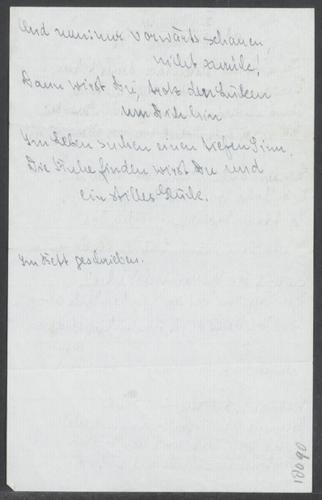 Und nun immer vorwärts schauen,
nicht zurück!
Dann wirst Du, trotz den Lücken
um Dich hin
Im Leben suchen einen tiefen Sinn.
Die Liebe finden wirst Du und
ein stilles Glück.
Im Bett geschrieben.
10090